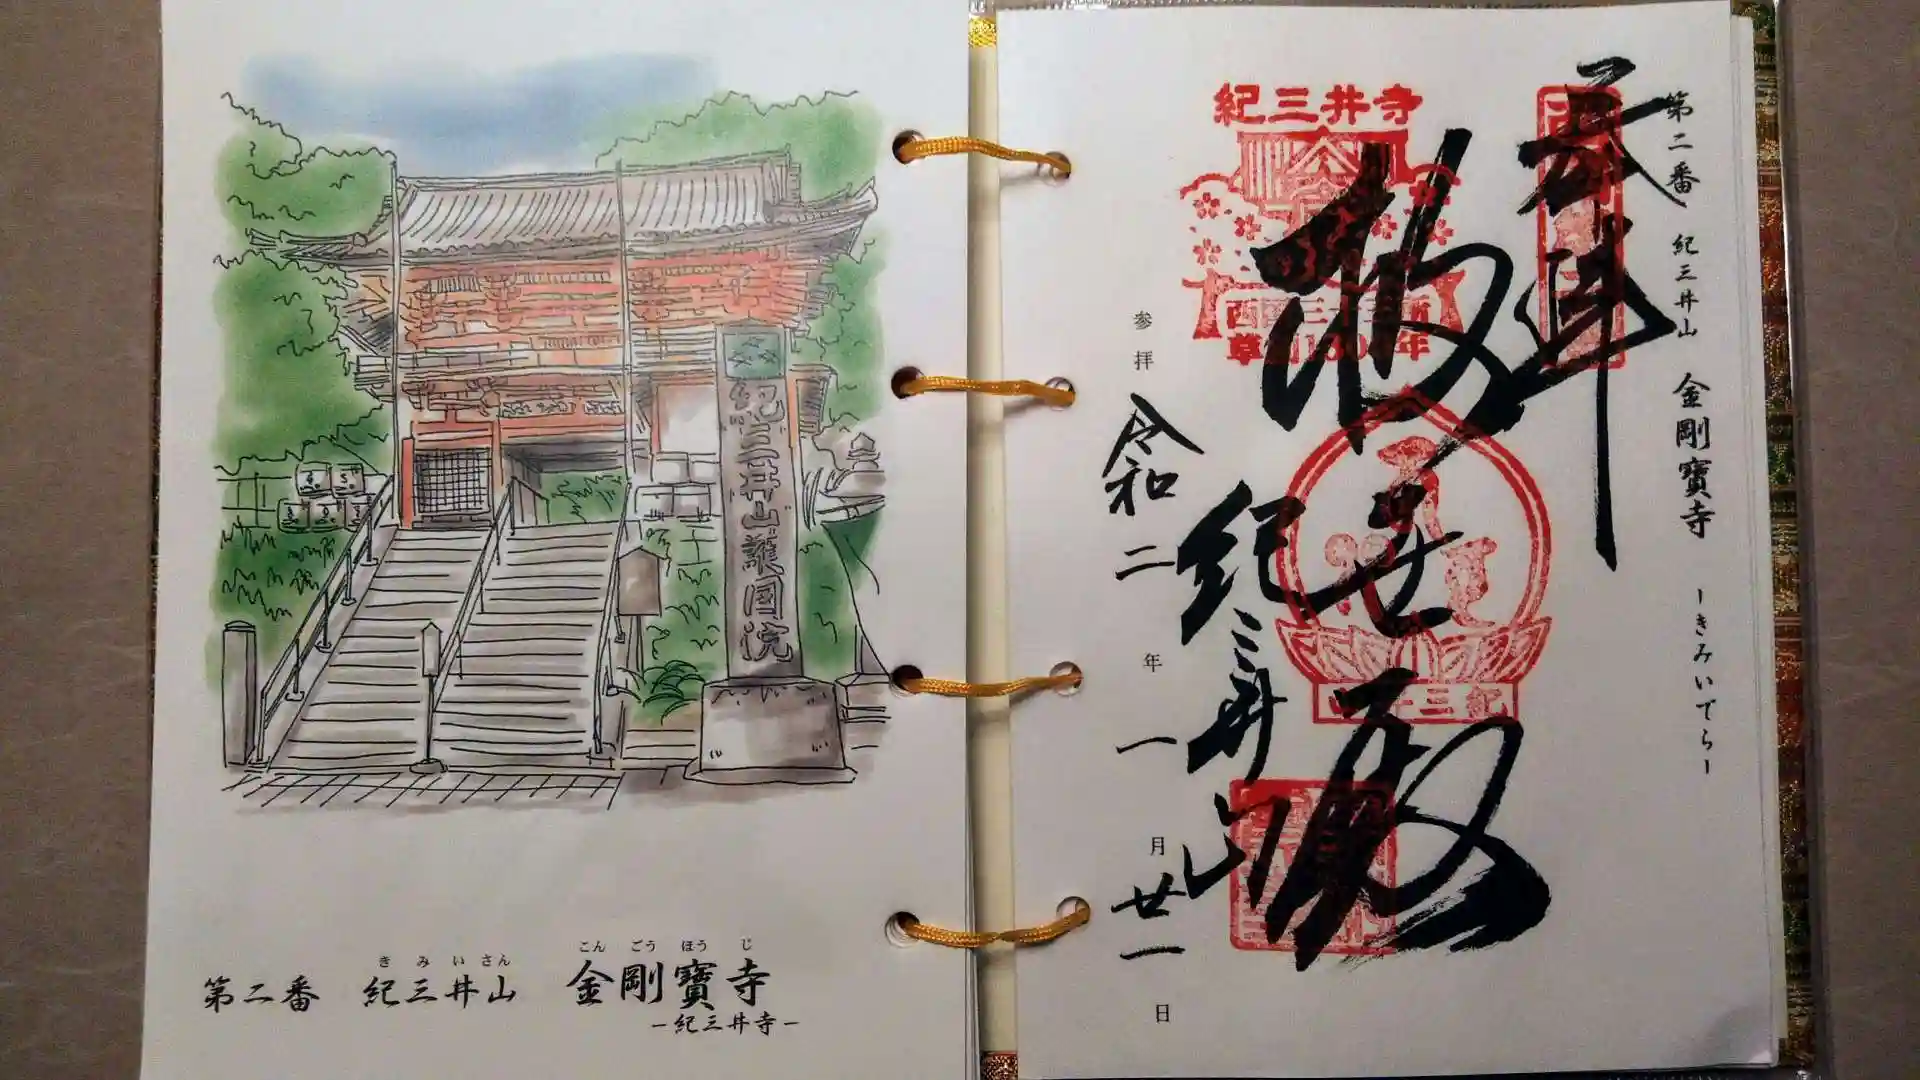 紀三井山護国院
こんごうほうじ
きみいさん
第二番 紀三井山 金剛寶寺
－紀三井寺－
第二番 紀三井山 金剛寶寺 －きみいでら－
奉拝
救世殿
紀三井山
参拝 令和二年一月廿一日
紀三井寺
西国三十三所
草創1300年
紀三井山